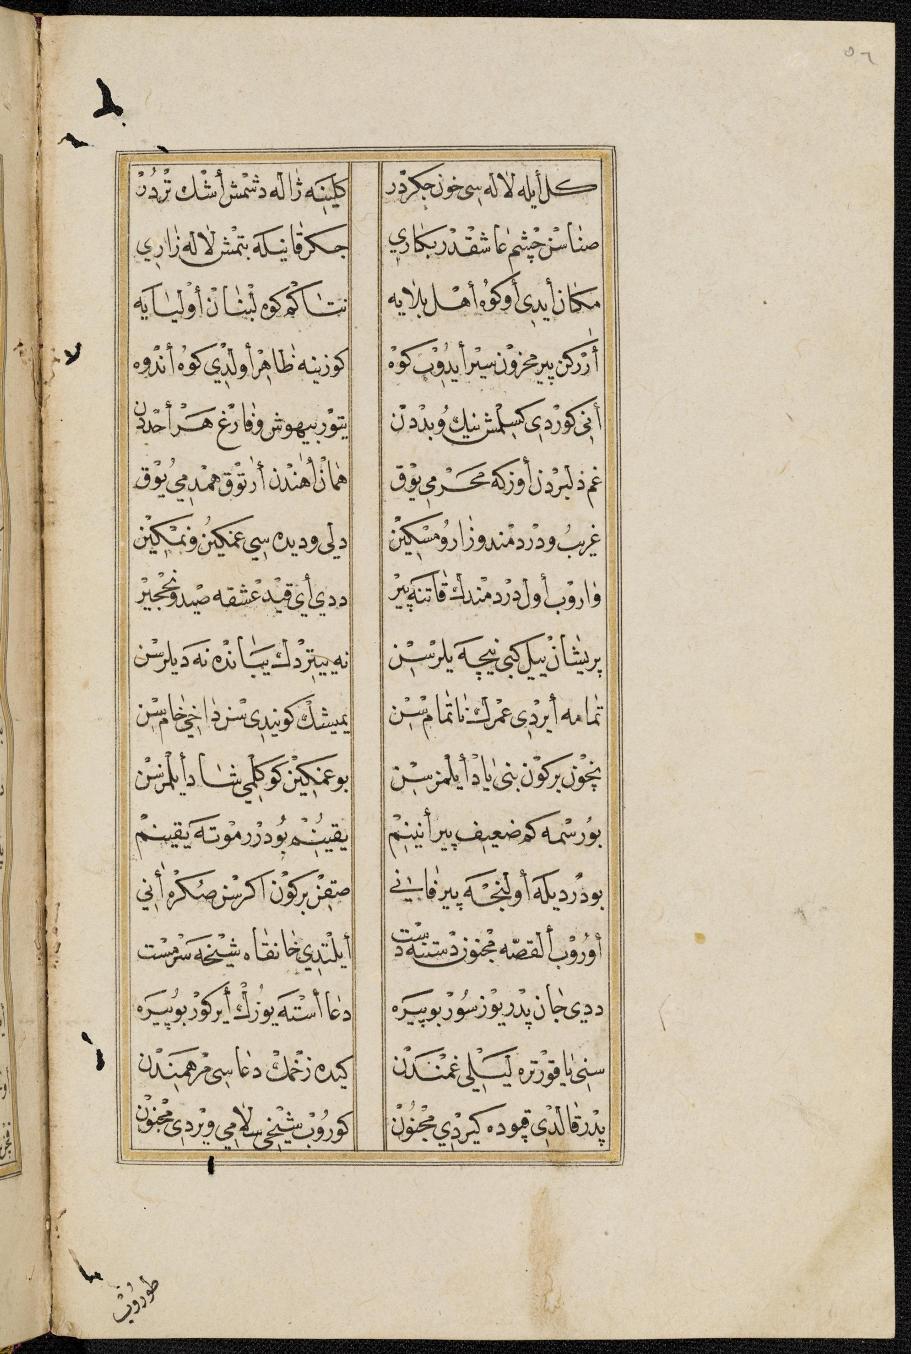 ٥٦
كل أيله لاله سى خون جكردر كلينه ژاله دشمش أشك تردر
صناسن چشم عاشقدر بكاري جكر قانيكه بتمش لاله زاري
مكان أيدى أو كوه أهل بلايه نتاكم كوه لبنان أوليايه
أرركن پير محزون سير أيدوب كوه كوزينه ظاهر أولدي كوه أندوه
أنى كوردى كسلمش نيك وبددن يتور بيهوش وفارغ هر أحددن
غم دلبردن أوزكه محرمى يوق همان أهندن أرتوق همدمي يوق
غريب ودردمند وزار ومسكين دلى وديده سي غمكين ونمكين
واروب أول دردمندك قاتنه پير ددي أي قيد عشقه صيد ونخجير
پريشان ييل كبي نيچه يلرسن نه ييتردك بيابانده نه ديلرسن
تمامه أيردى عمرك ناتمام سن يميشك كونيدى سن داخي خام سن
نچون بر كون بنى ياد أيلمزسن بو غمكين كوكلمي شاد أيلمزسن
بو رسمه كم ضعيف پير أنينم يقينم بودرر موته يقينم
بودر ديكه أولنجه پير فانى صقن بر كون اكرسن صكره أني
أوروب ألقصه مجنون دستنه دست أيلتدي خانقاه شيخه سرمست
ددى جان پدر يوز سور بو پيره دعا أسته يوزك أير كور بو پيره
سنى يا قورتره ليلى غمندن كيده زخمك دعاسى مرهمندن
پدر قالدى قپوده كيردي مجنون كوروب شيخى سلامي ويردى مجنون
طوروب